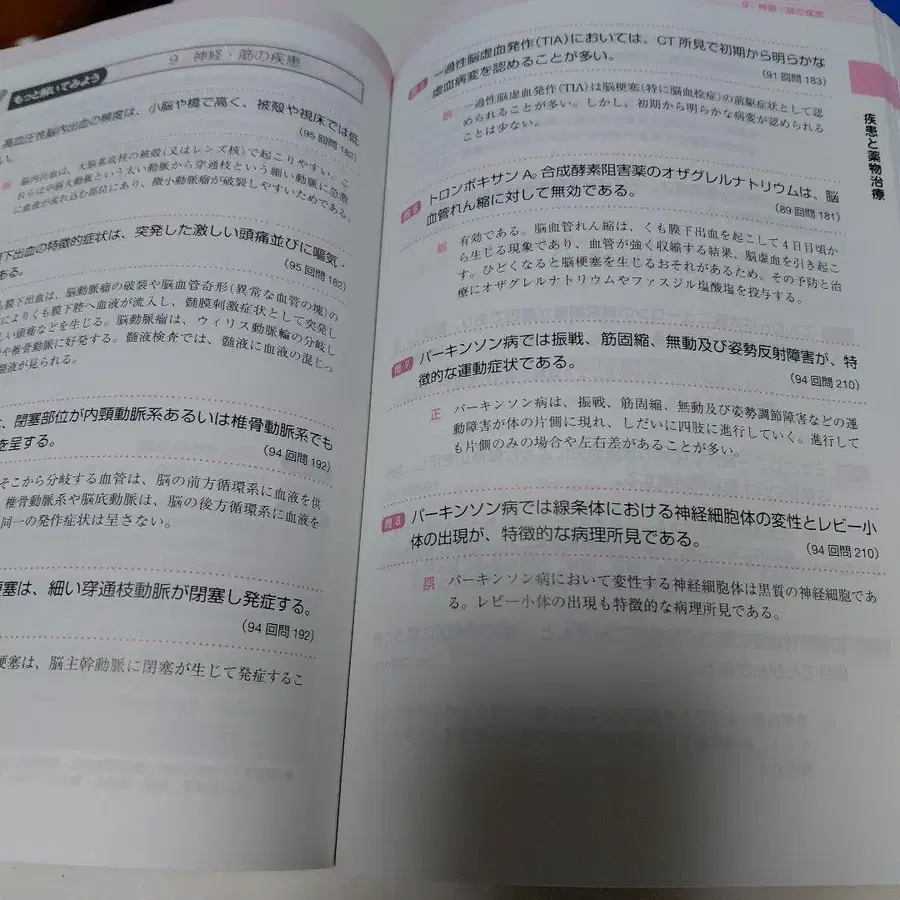 9 神経・筋の疾患
もっと解いてみよう
高血圧性脳内出血の頻度は、小脳や橋で高く、被殻や視床では低
い。
(95回問182)
脳内出血は、大脳基底核の被殻（又はレンズ核）で起こりやすい。こ
ちらは中大脳動脈という太い動脈から穿通枝という細い動脈に急激
に血液が流れ込む部位にあり、微小動脈瘤が破裂しやすいためである。
膜下出血の特徴的症状は、突発した激しい頭痛並びに嘔気・
ある。
(95回問182)
も膜下出血は、脳動脈瘤の破裂や脳血管奇形（異常な血管の塊）の
によりくも膜下腔へ血液が流入し、髄膜刺激症状として突発し
しい頭痛などを生じる。脳動脈瘤は、ウィリス動脈輪の分岐し
や椎骨動脈に好発する。髄液検査では、髄液に血液の混じっ
髄液が見られる。
、閉塞部位が内頸動脈系あるいは椎骨動脈系でも
を呈する。
(94回問192)
そこから分岐する血管は、脳の前方循環系に血液を供
椎骨動脈系や脳底動脈は、脳の後方循環系に血液を
同一の発作症状は呈さない。
梗塞は、細い穿通枝動脈が閉塞し発症する。
(94回問192)
梗塞は、脳主幹動脈に閉塞が生じて発症するこ
9 神経・筋の疾患
一過性脳虚血発作(TIA)においては、CT所見で初期から明らかな
虚血病変を認めることが多い。
(91回問183)
誤 一過性脳虚血発作(TIA)は脳梗塞(特に脳血栓症)の前駆症状として認
められることが多い。しかし、初期から明らかな病変が認められる
ことは少ない。
問6 トロンボキサンA₂合成酵素阻害薬のオザグレルナトリウムは、脳
血管れん縮に対して無効である。
(89回問181)
誤 有効である。脳血管れん縮は、くも膜下出血を起こして4日目頃か
ら生じる現象であり、血管が強く収縮する結果、脳虚血を引き起こ
す。ひどくなると脳梗塞を生じるおそれがあるため、その予防と治
療にオザグレルナトリウムやファスジル塩酸塩を投与する。
問7 パーキンソン病では振戦、筋固縮、無動及び姿勢反射障害が、特
徴的な運動症状である。
(94回問210)
正 パーキンソン病は、振戦、筋固縮、無動及び姿勢調節障害などの運
動障害が体の片側に現れ、しだいに四肢に進行していく。進行して
も片側のみの場合や左右差があることが多い。
問8 パーキンソン病では線条体における神経細胞体の変性とレビー小
体の出現が、特徴的な病理所見である。
(94回問210)
誤 パーキンソン病において変性する神経細胞体は黒質の神経細胞であ
る。レビー小体の出現も特徴的な病理所見である。
疾患と薬物治療